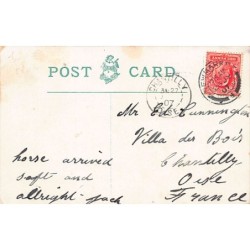 POST CARD
CHANTILLY
07
Mr Ed Cunningham
Villa des Bois
Chantilly
Oise
France
horse arrived
safe and
allright - Jack